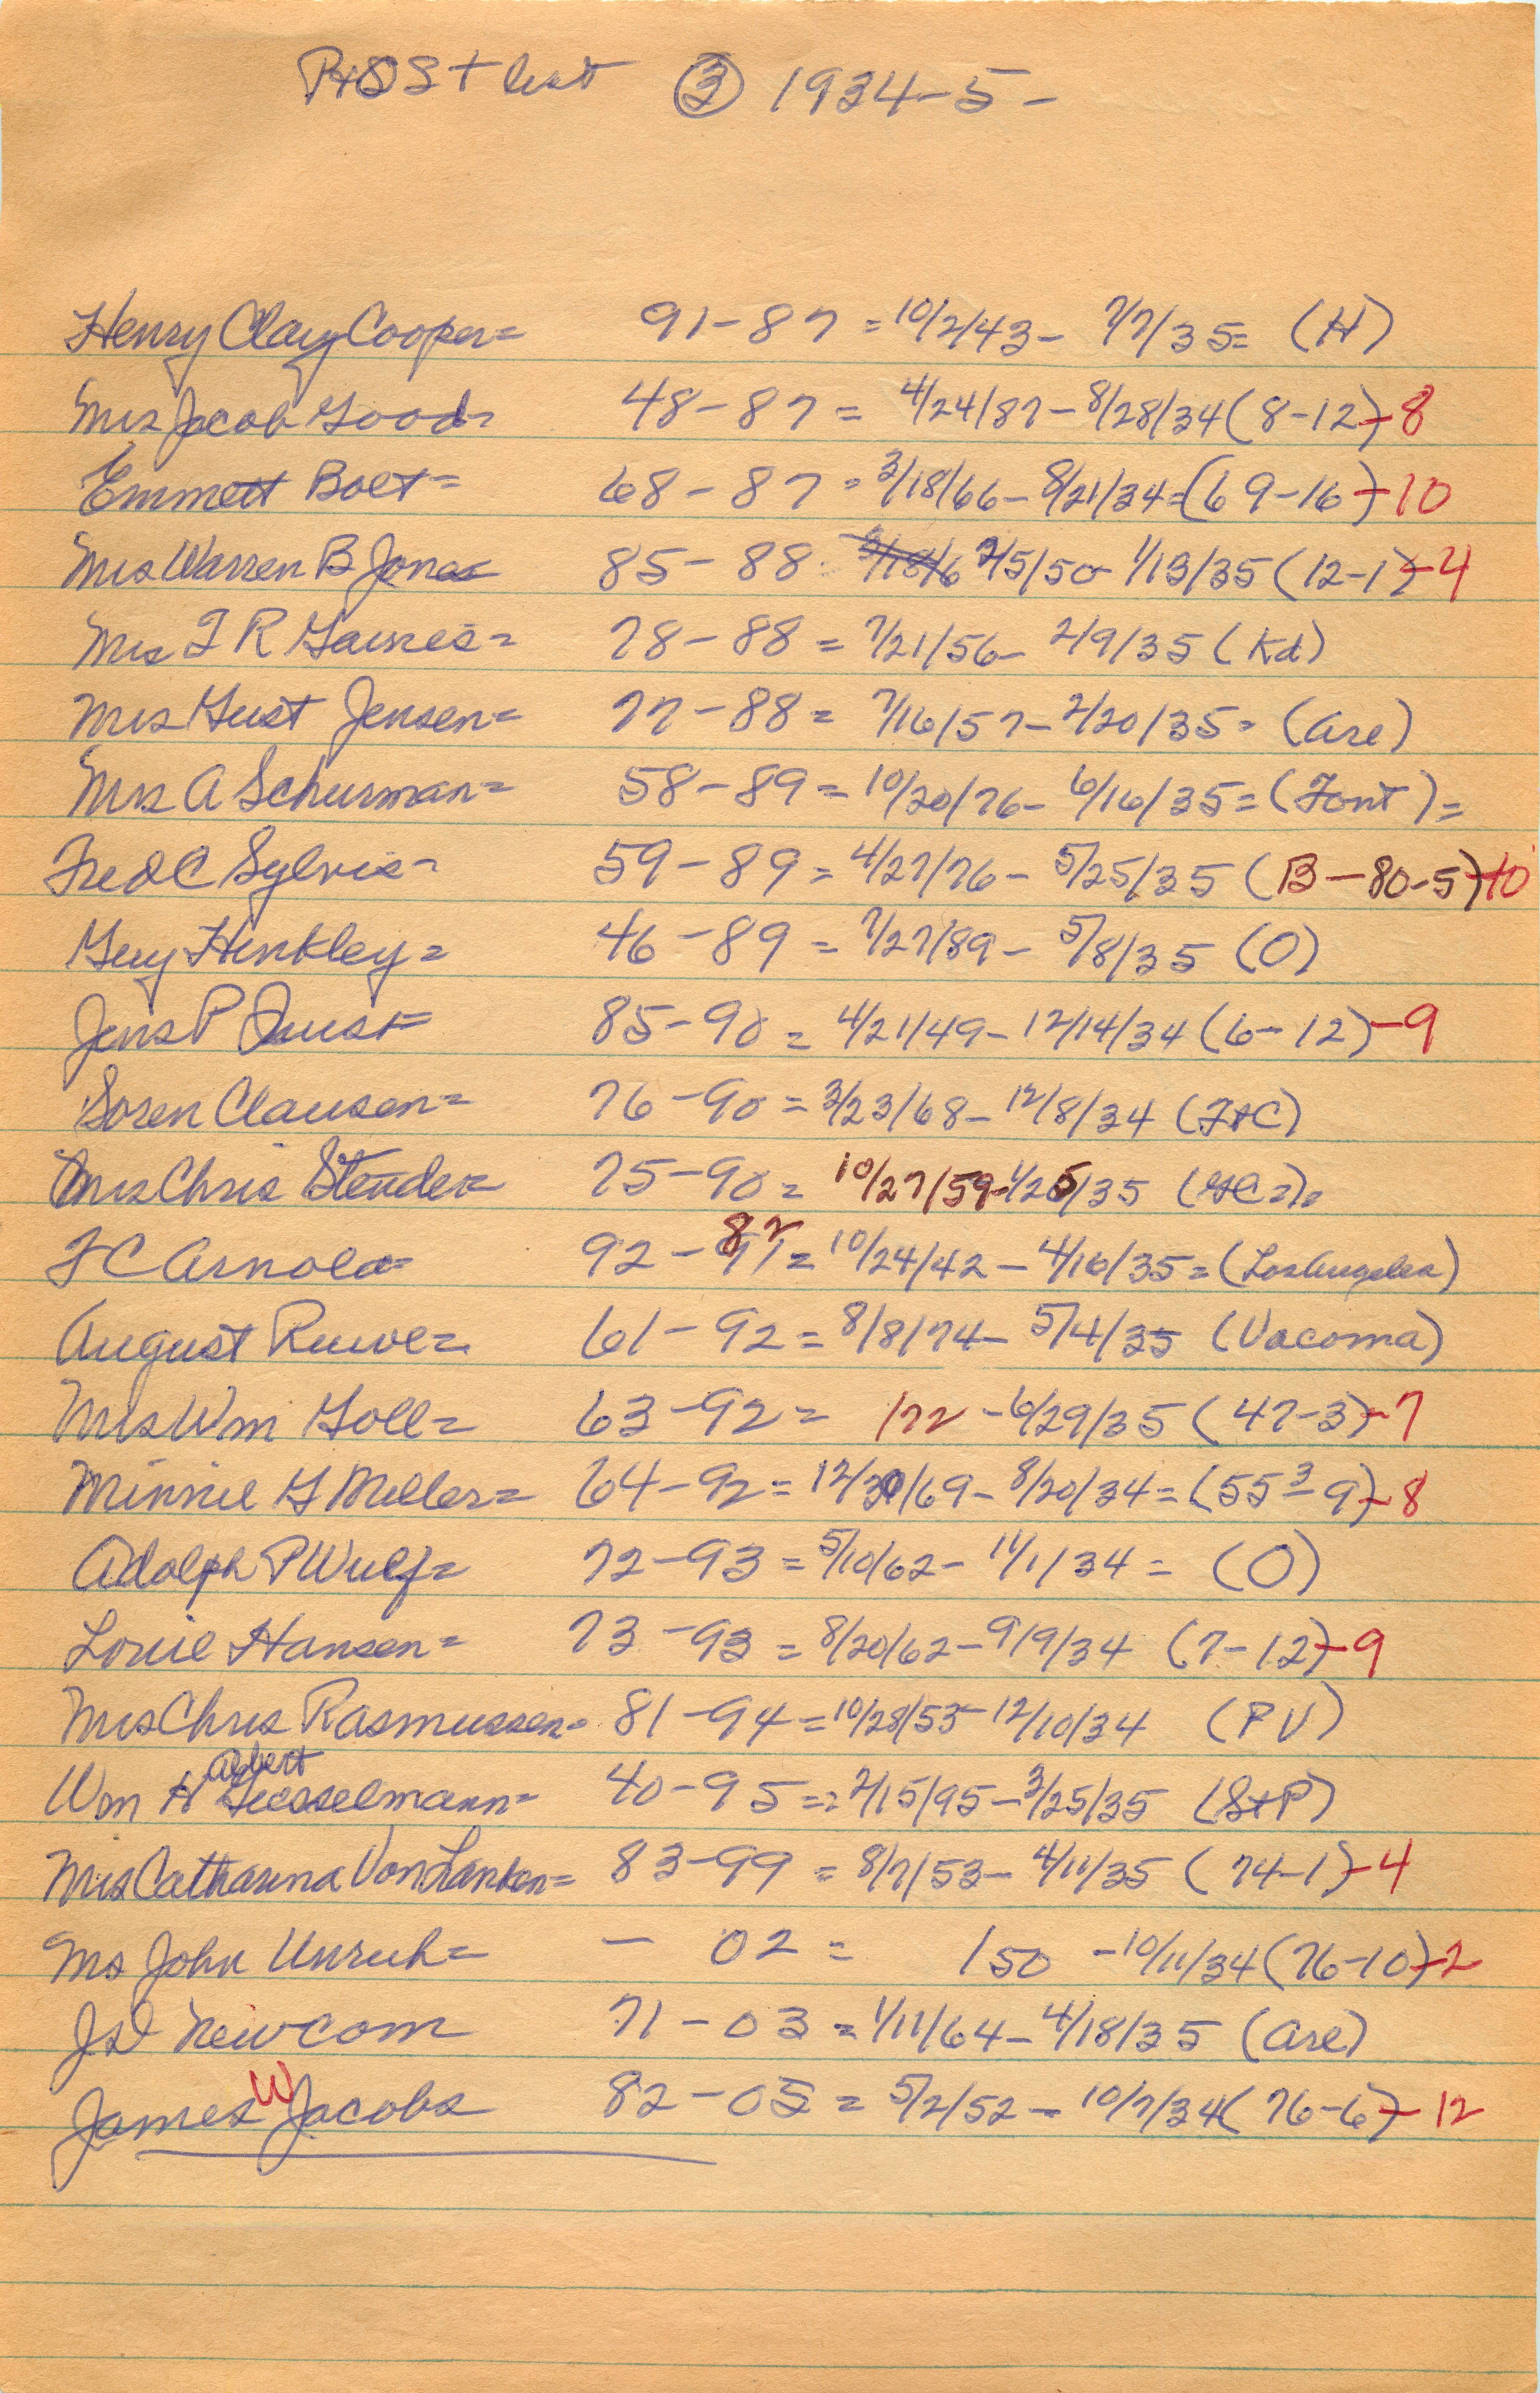 P+OS + list ③ 1934-5-
Henry Clay Cooper= 91-87 = 10/2/43- 7/7/35= (H)
Mrs Jacob Good= 48-87 = 4/24/87-8/28/34 (8-12)-8
Emmett Bolt= 68-87 = 3/18/66-8/21/34=(69-16)-10
Mrs Warren B Jones 85-88 3/18/6 2/5/50- 1/13/35 (12-1)-4
Mrs F R Gaines= 78-88 = 7/21/56- 2/9/35 (Kd)
Mrs Gust Jensen= 77-88 = 7/16/57-2/20/35= (are)
Mrs A Schurman= 58-89 = 10/20/76- 6/16/35=(Font)=
Fred C Sylvis= 59-89 = 4/27/76- 5/25/35 (B-80-5)-10
Guy Hinkley= 46-89 = 7/27/89- 5/8/35 (O)
Jens P 85-90 = 4/21/49-12/14/34 (6-12)-9
Soren Clausen= 76-90 = 3/23/68-12/8/34 (F+C)
Mrs Chris Stender 75-90 = 10/27/59-1/25/35
82
F C Arnold= 92-91= 10/24/42-4/16/35=(Los Angeles)
August Ruwe= 61-92 = 8/8/74- 5/4/35 (Vacoma)
Mrs Wm Goll= 63-92 = /72 -6/29/35 (47-3)-7
Minnie G Miller= 64-92 = 12/30/69-8/20/34=(55 3-9)-8
Adolph P Wulf= 72-93 = 5/10/62- 11/1/34 = (O)
Louie Hansen= 73-93 = 8/20/62-9/9/34 (7-12)-9
Mrs Chris Rasmussen= 81-94 = 10/28/53-12/10/34 (PV)
Albert
Wm H Giesselmann= 40-95 = 2/15/95-3/25/35 (S+P)
Mrs Catharina Von Lanken= 83-99 = 8/7/53- 4/11/35 (74-1)-4
Mrs John Unruh= - 02 = /50 -10/11/34 (76-10)-2
Newcom 71-03 = 1/11/64-4/18/35 (are)
James W Jacobs 82-05 = 5/2/52- 10/7/34 (76-6)-12